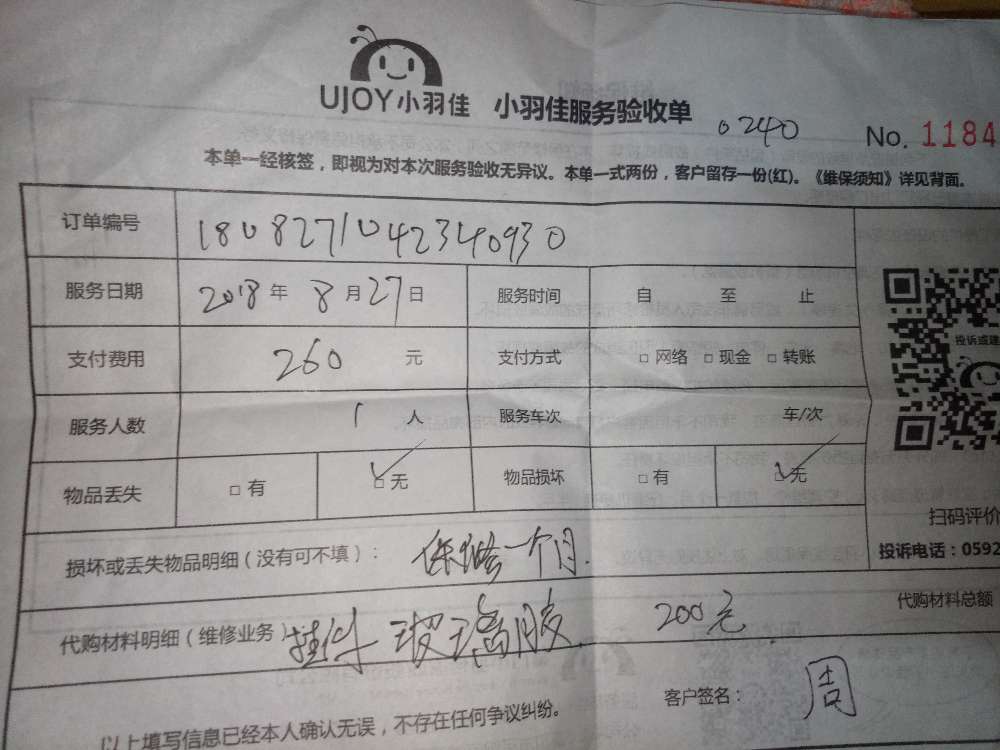 UJOY小羽佳 小羽佳服务验收单
0240 No. 1184
本单一经核签，即视为对本次服务验收无异议。本单一式两份，客户留存一份(红)。《维保须知》详见背面。
订单编号 1808271042340930
服务日期 2018年 8月27日 服务时间 自 至 止
支付费用 260 元 支付方式 □网络 □现金 □转账
服务人数 1 人 服务车次 车/次
物品丢失 □有 ☑无 物品损坏 □有 ☑无
投诉或建
扫码评价
投诉电话：0592
损坏或丢失物品明细（没有可不填）： 保修一个月.
代购材料明细（维修业务） 挂件 玻璃胶 200元 代购材料总额
以上填写信息已经本人确认无误，不存在任何争议纠纷。 客户签名： 周